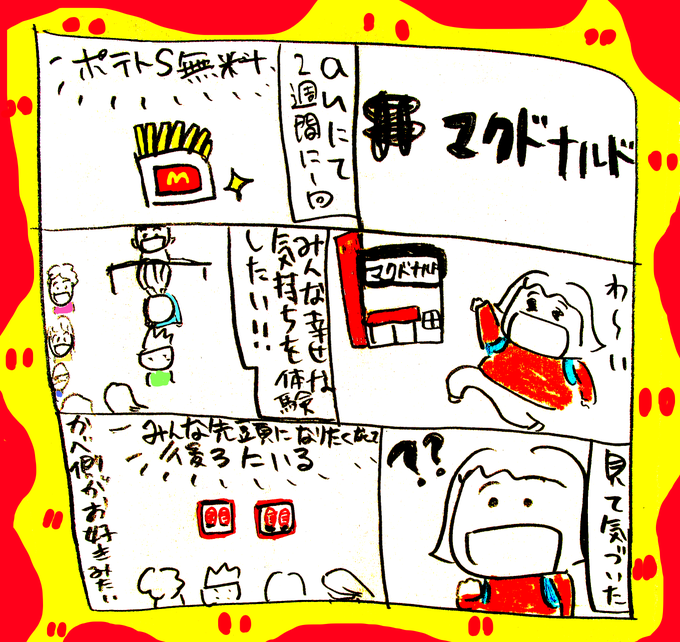 マクドナルド
auにて
2週間に1回
ポテトS無料
M
わ〜い
マクドナルド
みんな幸せな
気持ちを体験
したい!!
見て気づいた
??
みんな先頭になりたくなくて
後ろにいる
かべ側がお好きみたい